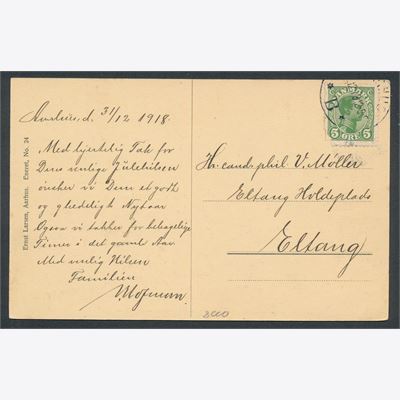 Aarhus, d. 31/12 1918.
Med hjertelig Tak for
Deres venlige Julehilsen
ønsker vi Dem et godt
og glædeligt Nytaar
Ogsaa vi takker for behagelige
Timer i det gamle Aar.
Med venlig Hilsen
Familien
Hofman.
Ernst Larsen, Aarhus. Eneret. No. 24
DANMARK
5 ØRE 5
Hr. cand. phil. V. Møller
Eltang Holdeplads
Eltang